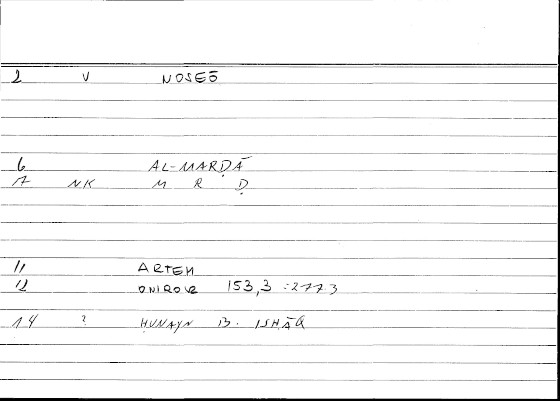 2 V NOSEŌ
6 AL-MARḌĀ
7 NK M R Ḍ
11 ARTEM
12 ONIROCR 153,3 :277 3
14 ? ḤUNAYN B. ISḤĀQ